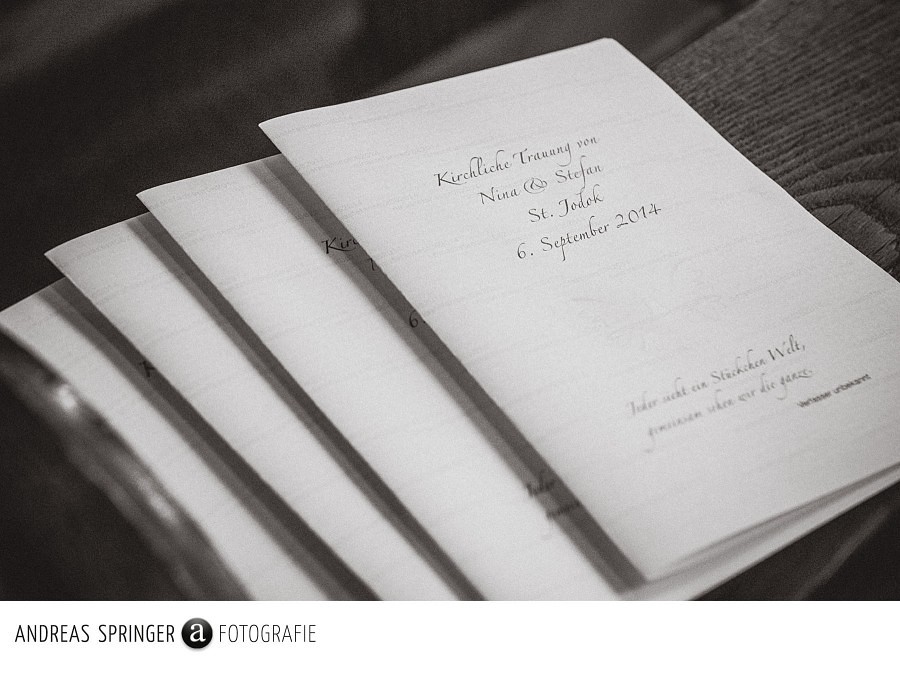 Kirchliche Trauung von
Nina & Stefan
St. Jodok
6. September 2014
Jeder sieht ein Stückchen Welt,
gemeinsam sehen wir die ganze.
Verfasser unbekannt
Kirc
6.
K
Jeder
ANDREAS SPRINGER a FOTOGRAFIE